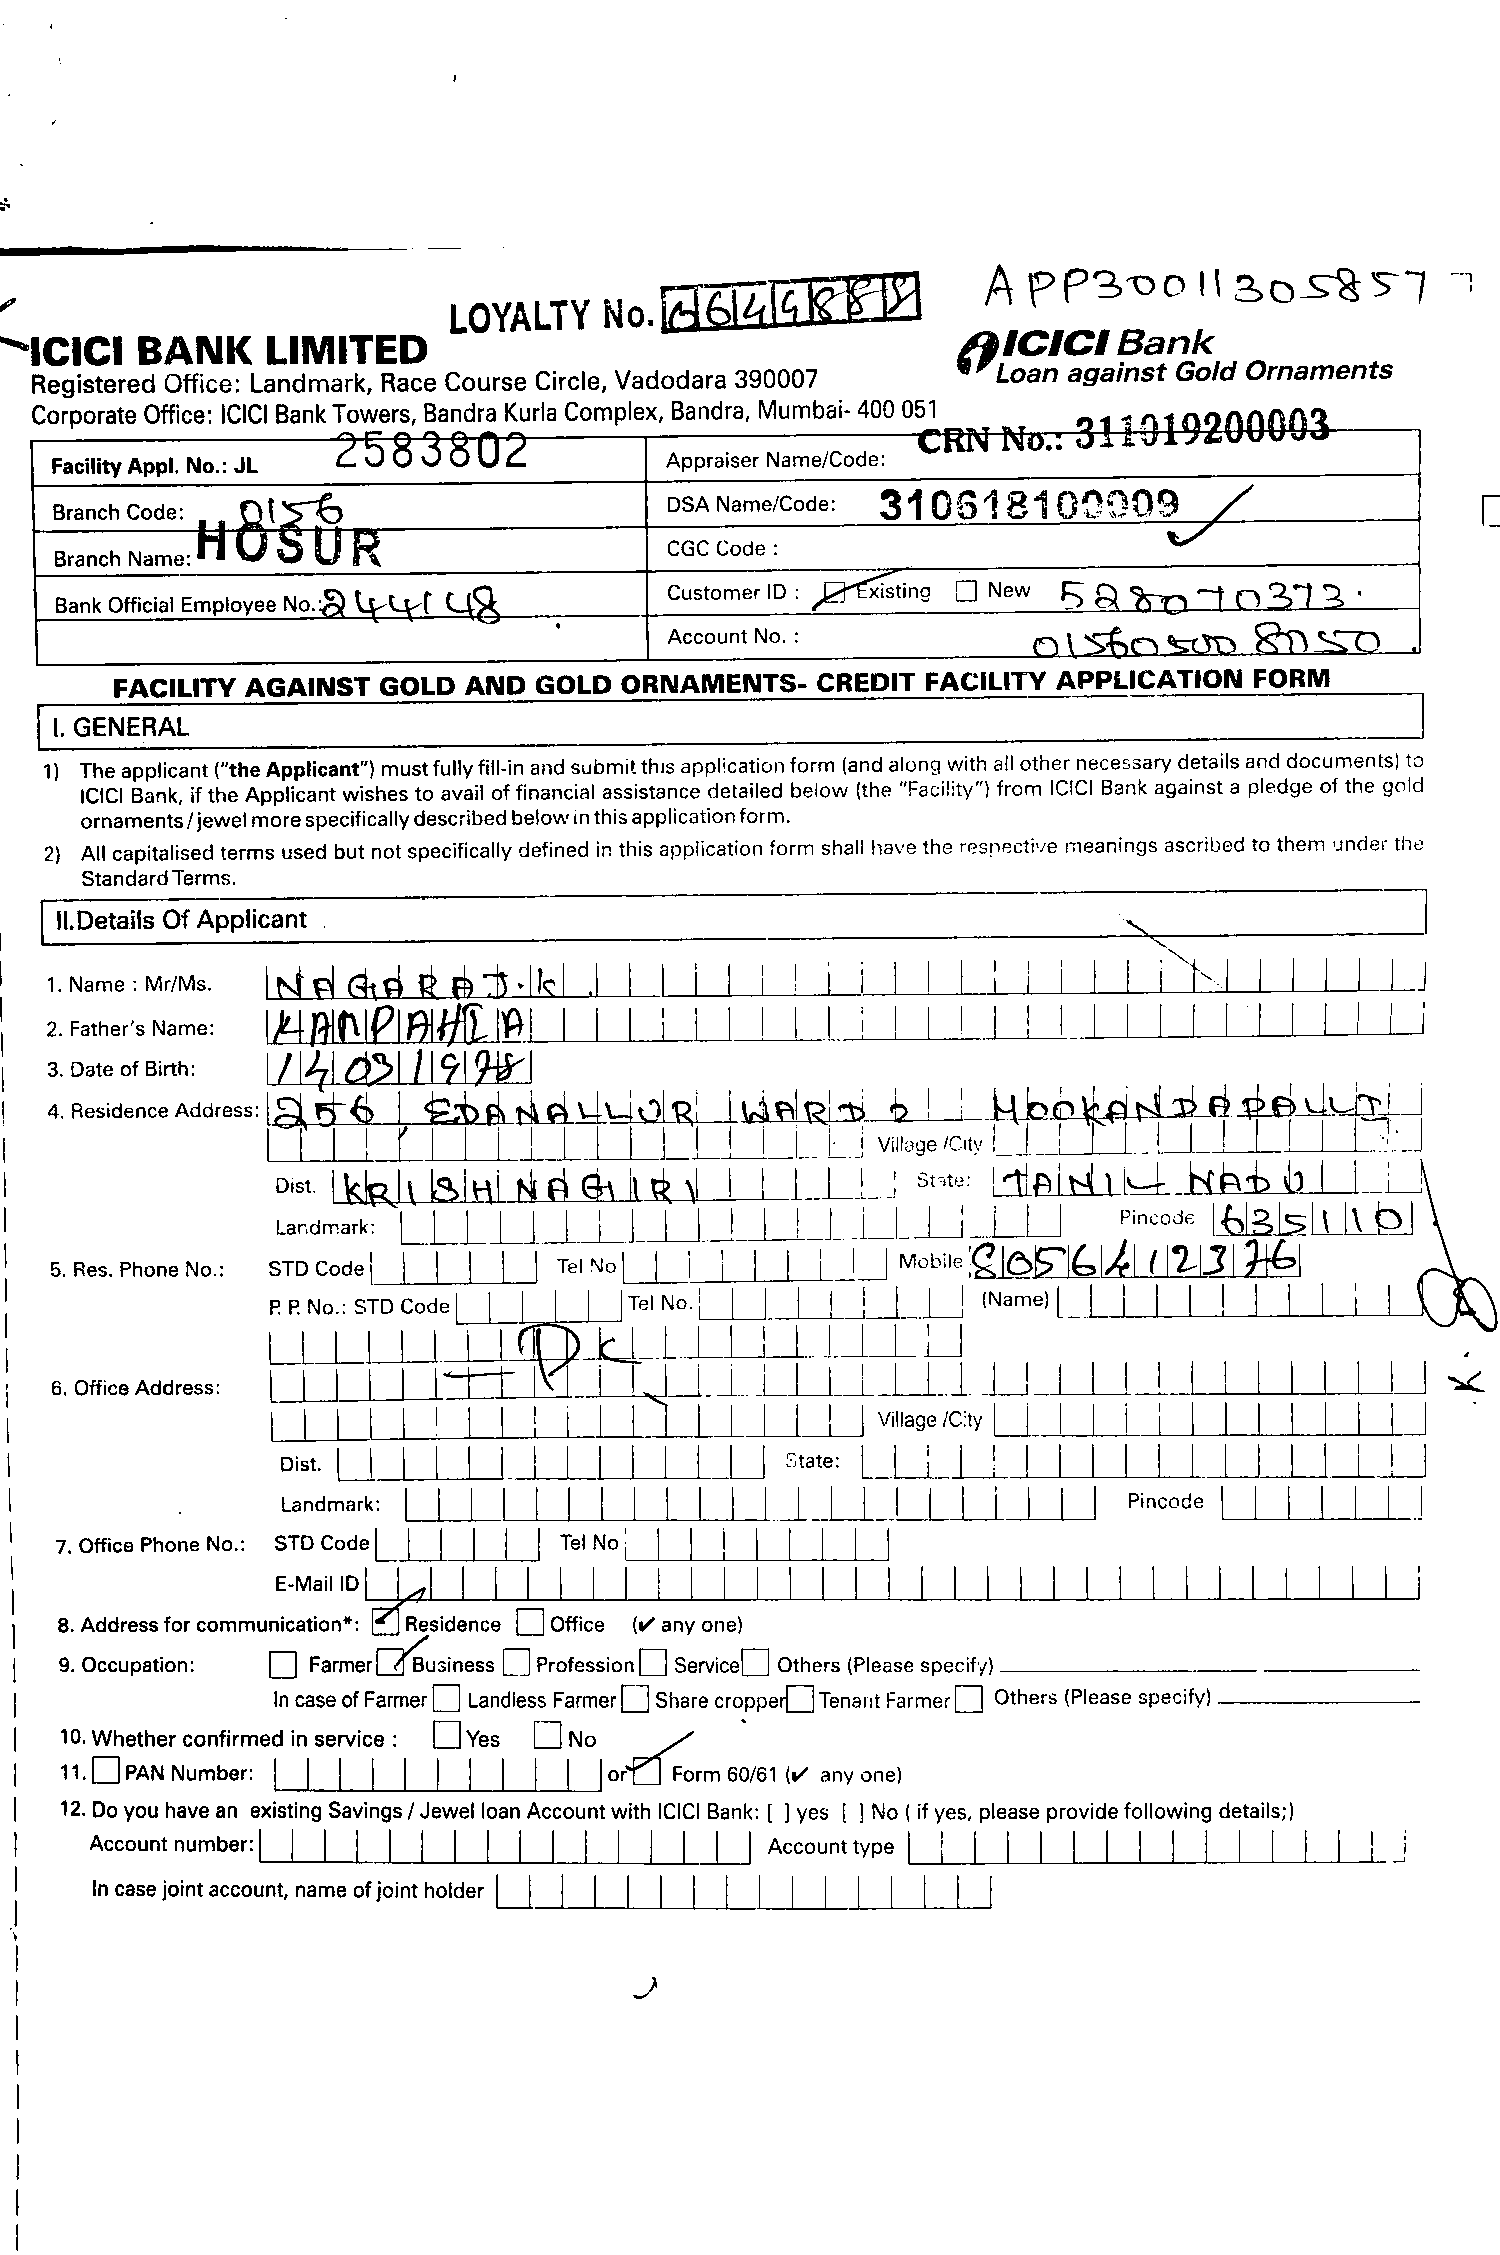 APP30011305857
LOYALTY No.
ICICI BANK LIMITED
ICICI Bank
Registered Office: Landmark, Race Course Circle, Vadodara 390007
Loan against Gold Ornaments
Corporate Office: ICICI Bank Towers, Bandra Kurla Complex, Bandra, Mumbai- 400 051
CRN No.: 311019200003
Facility Appl. No.: JL 2583802
Appraiser Name/Code:
Branch Code: 0156
DSA Name/Code: 310618100009
Branch Name: HOSUR
CGC Code :
Bank Official Employee No.: 244148
Customer ID : Existing New 528070373
Account No. : 015605008050
FACILITY AGAINST GOLD AND GOLD ORNAMENTS- CREDIT FACILITY APPLICATION FORM
I. GENERAL
1) The applicant ("the Applicant") must fully fill-in and submit this application form (and along with all other necessary details and documents) to
ICICI Bank, if the Applicant wishes to avail of financial assistance detailed below (the "Facility") from ICICI Bank against a pledge of the gold
ornaments / jewel more specifically described below in this application form.
2) All capitalised terms used but not specifically defined in this application form shall have the respective meanings ascribed to them under the
Standard Terms.
II.Details Of Applicant
1. Name : Mr/Ms. NAGARAJ.K
2. Father's Name:
3. Date of Birth: 14031978
4. Residence Address: 256, EDANALLUR WARD 2 MOOKANDAPALLI
Village /City
Dist. KRISHNAGIRI State: TAMIL NADU
Landmark: Pincode 635110
5. Res. Phone No.: STD Code Tel No Mobile 8056412376
P. P. No.: STD Code Tel No. (Name)
6. Office Address:
Village /City
Dist. State:
Landmark: Pincode
7. Office Phone No.: STD Code Tel No
E-Mail ID
8. Address for communication*: Residence Office (✔ any one)
9. Occupation: Farmer Business Profession Service Others (Please specify)
In case of Farmer Landless Farmer Share cropper Tenant Farmer Others (Please specify)
10. Whether confirmed in service : Yes No
11. PAN Number: or Form 60/61 (✔ any one)
12. Do you have an existing Savings / Jewel loan Account with ICICI Bank: [ ] yes [ ] No ( if yes, please provide following details;)
Account number: Account type
In case joint account, name of joint holder